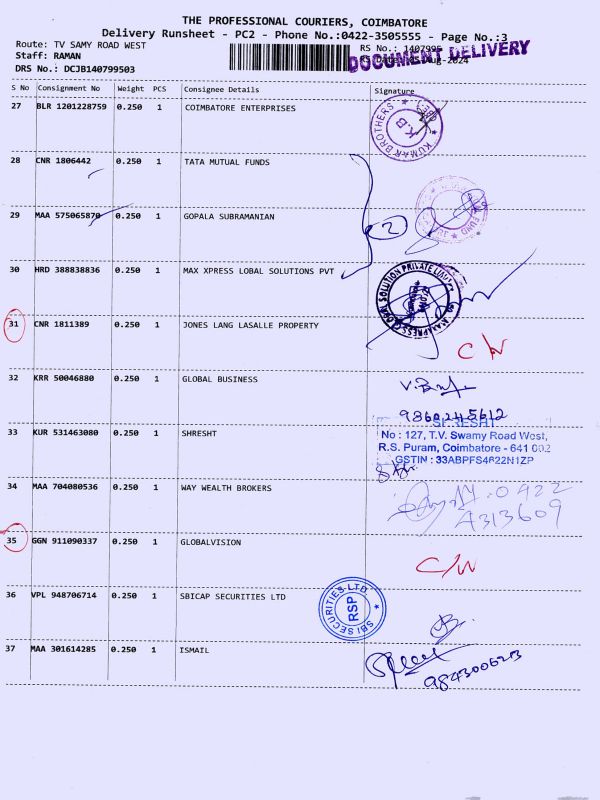 THE PROFESSIONAL COURIERS, COIMBATORE
Delivery Runsheet - PC2 - Phone No.:0422-3505555 - Page No.:3
Route: TV SAMY ROAD WEST
Staff: RAMAN
DRS No.: DCJB140799503
RS No.: 1407995
Aug-2024
DOCUMENT DELIVERY
S No Consignment No Weight PCS Consignee Details Signature
27 BLR 1201228759 0.250 1 COIMBATORE ENTERPRISES
KUMAR BROTHERS
K.B
28 CNR 1806442 0.250 1 TATA MUTUAL FUNDS
29 MAA 575065870 0.250 1 GOPALA SUBRAMANIAN
2
FUND
30 HRD 388838836 0.250 1 MAX XPRESS LOBAL SOLUTIONS PVT
SOLUTION PRIVATE
31 CNR 1811389 0.250 1 JONES LANG LASALLE PROPERTY
C/W
32 KRR 50046880 0.250 1 GLOBAL BUSINESS
33 KUR 531463080 0.250 1 SHRESHT
No : 127, T.V. Swamy Road West,
R.S. Puram, Coimbatore - 641 002
GSTIN : 33ABPFS4622N1ZP
34 MAA 704080536 0.250 1 WAY WEALTH BROKERS
0422
4313609
35 GGN 911090337 0.250 1 GLOBALVISION
C/W
36 VPL 948706714 0.250 1 SBICAP SECURITIES LTD
SBI SECURITIES LTD
RSP
37 MAA 301614285 0.250 1 ISMAIL